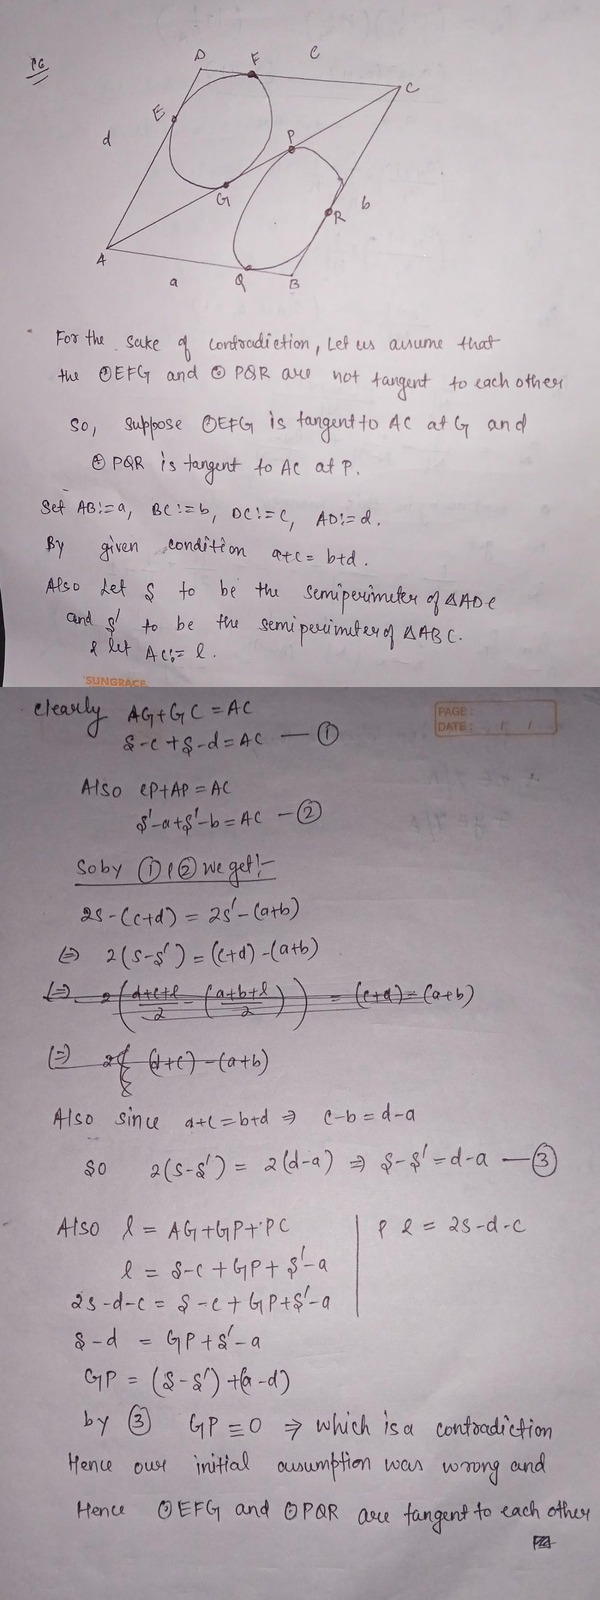 P6
D
F
c
C
E
d
P
G
R
b
A
a
Q
B
For the sake of contradiction, Let us assume that
the ⊙EFG and ⊙ PQR are not tangent to each other
so, suppose ⊙EFG is tangent to AC at G and
⊙ PQR is tangent to AC at P.
Set AB:=a, BC:=b, DC:=c, AD:=d.
By given condition a+c= b+d.
Also Let S to be the semiperimeter of △ADC
and S' to be the semiperimeter of △ABC.
& let AC:= l.
SUNGRACE
clearly AG+GC=AC
S-c+S-d=AC —①
PAGE:
DATE: / /
Also CP+AP=AC
S'-a+S'-b=AC -②
So by ① & ② we get:-
2s-(c+d) = 2s'-(a+b)
⇔ 2(s-s') = (c+d)-(a+b)
⇔ 2((d+c+l)/2 - (a+b+l)/2) = (c+d)-(a+b)
⇔ 2{ (d+c)-(a+b)
Also since a+c=b+d ⇒ c-b=d-a
so 2(s-s') = 2(d-a) ⇒ S-S'=d-a —③
Also l = AG+GP+PC
& l = 2s-d-c
l = S-c+GP+S'-a
2s-d-c = S-c+GP+S'-a
S-d = GP+S'-a
GP = (S-S')+(a-d)
by ③ GP=0 ⇒ which is a contradiction
Hence our initial assumption was wrong and
Hence ⊙EFG and ⊙PQR are tangent to each other